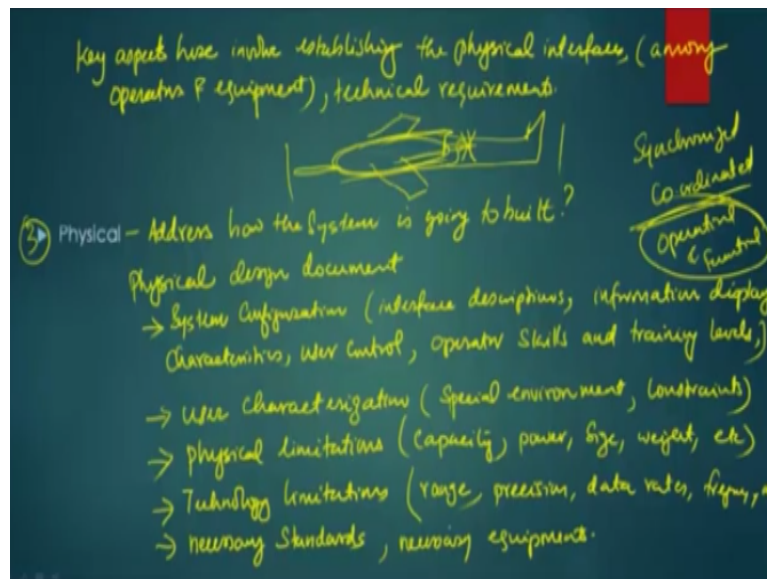 Key aspects here involve establishing the physical interfaces, (among
operators & equipment), technical requirements.
Synchronized
Co-ordinated
Operational
& Functional
3 Physical - Address how the System is going to built?
Physical design document
→ System Configuration (interface descriptions, information display
Characteristics, user control, operator skills and training levels,)
→ user characterization (Special environment, Constraints)
→ physical limitations (Capacity, power, Size, weight, etc)
→ Technology limitations (range, precision, data rates,
→ necessary Standards, necessary equipments.